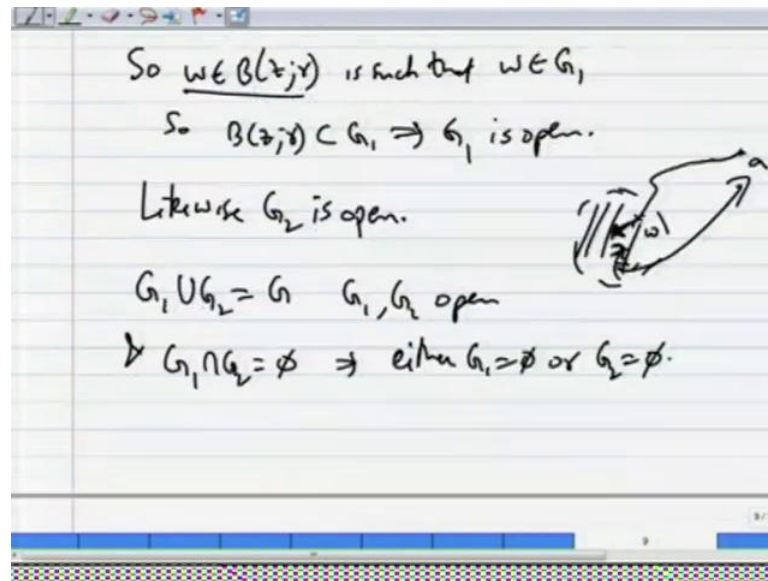 So w ∈ B(z;r) is such that w ∈ G₁
So B(z;r) ⊂ G₁ ⇒ G₁ is open.
a
w
Likewise G₂ is open.
z
G₁ ∪ G₂ = G G₁, G₂ open
& G₁ ∩ G₂ = ϕ ⇒ either G₁ = ϕ or G₂ = ϕ.
9